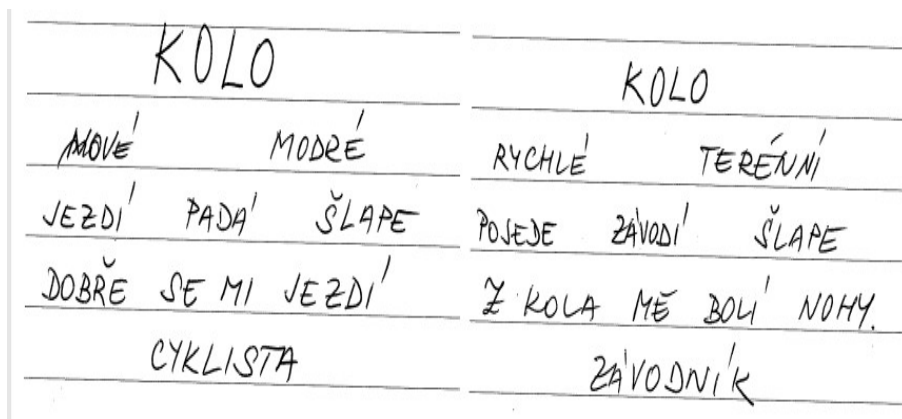 KOLO
NOVÉ MODRÉ
JEZDÍ PADÁ ŠLAPE
DOBŘE SE MI JEZDÍ
CYKLISTA
KOLO
RYCHLÉ TERÉNNÍ
POJEDE ZÁVODÍ ŠLAPE
Z KOLA MĚ BOLÍ NOHY.
ZÁVODNÍK